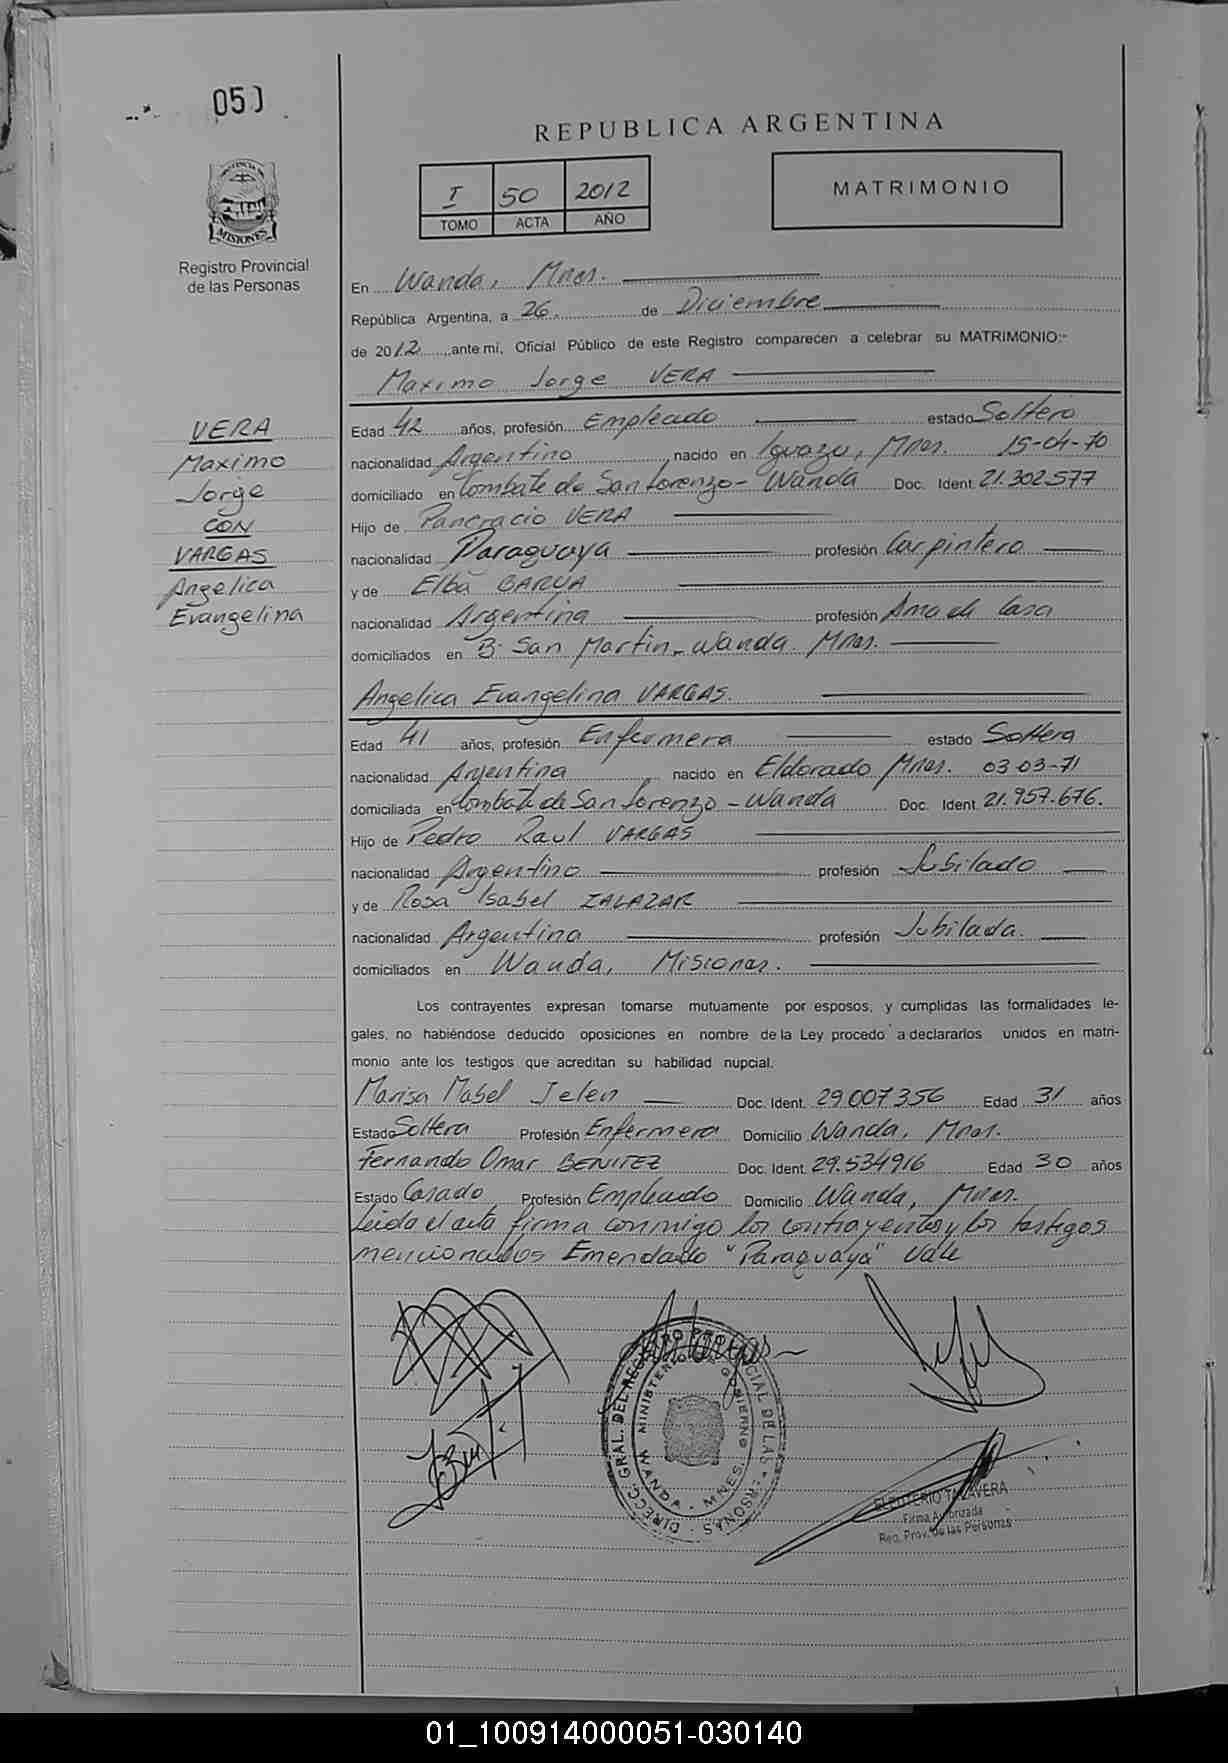 REPUBLICA ARGENTINA
I 50 2012
TOMO ACTA AÑO
MATRIMONIO
PROVINCIA DE
MISIONES
Registro Provincial
de las Personas
En Wanda, Mnes.
República Argentina, a 26 de Diciembre
de 2012, ante mi, Oficial Público de este Registro comparecen a celebrar su MATRIMONIO:-
Maximo Jorge VERA
VERA
Maximo
Jorge
CON
VARGAS
Angelica
Evangelina
Edad 42 años, profesión Empleado estado Soltero
nacionalidad Argentino, nacido en Iguazu, Mnes. 15-04-70
domiciliado en Combate de San Lorenzo - Wanda Doc. Ident. 21.302.577
Hijo de Pancracio VERA
nacionalidad Paraguaya profesión Carpintero
y de Elba
nacionalidad Argentina profesión Ama de Casa
domiciliados en B. San Martin, Wanda. Mnes.
Angelica Evangelina VARGAS.
Edad 41 años, profesión Enfermera estado Soltera
nacionalidad Argentina, nacido en Eldorado Mnes. 03-03-71
domiciliada en Combate de San Lorenzo - Wanda Doc. Ident. 21.957.676.
Hijo de Pedro Raul VARGAS
nacionalidad Argentino profesión Jubilado
y de Rosa Isabel ZALAZAR
nacionalidad Argentina profesión Jubilada.
domiciliados en Wanda, Misiones.
Los contrayentes expresan tomarse mutuamente por esposos, y cumplidas las formalidades le-
gales, no habiéndose deducido oposiciones en nombre de la Ley procedo a declararlos unidos en matri-
monio ante los testigos que acreditan su habilidad nupcial.
Marisa Mabel Jelen Doc. Ident. 29.007.356 Edad 31 años
Estado Soltera Profesión Enfermera Domicilio Wanda, Mnes.
Fernando Omar BENITEZ Doc. Ident. 29.534916 Edad 30 años
Estado Casado Profesión Empleado Domicilio Wanda, Mnes.
Leida el acta firma conmigo los contrayentes y los testigos
mencionados Emendado "Paraguaya" Vale
DIRECC. GRAL. DEL REGISTRO PROVINCIAL DE LAS PERSONAS
MINISTERIO DE GOBIERNO
WANDA - MNES.
ELEUTERIO TALAVERA
Firma Autorizada
Reg. Prov. de las Personas
01_100914000051-030140